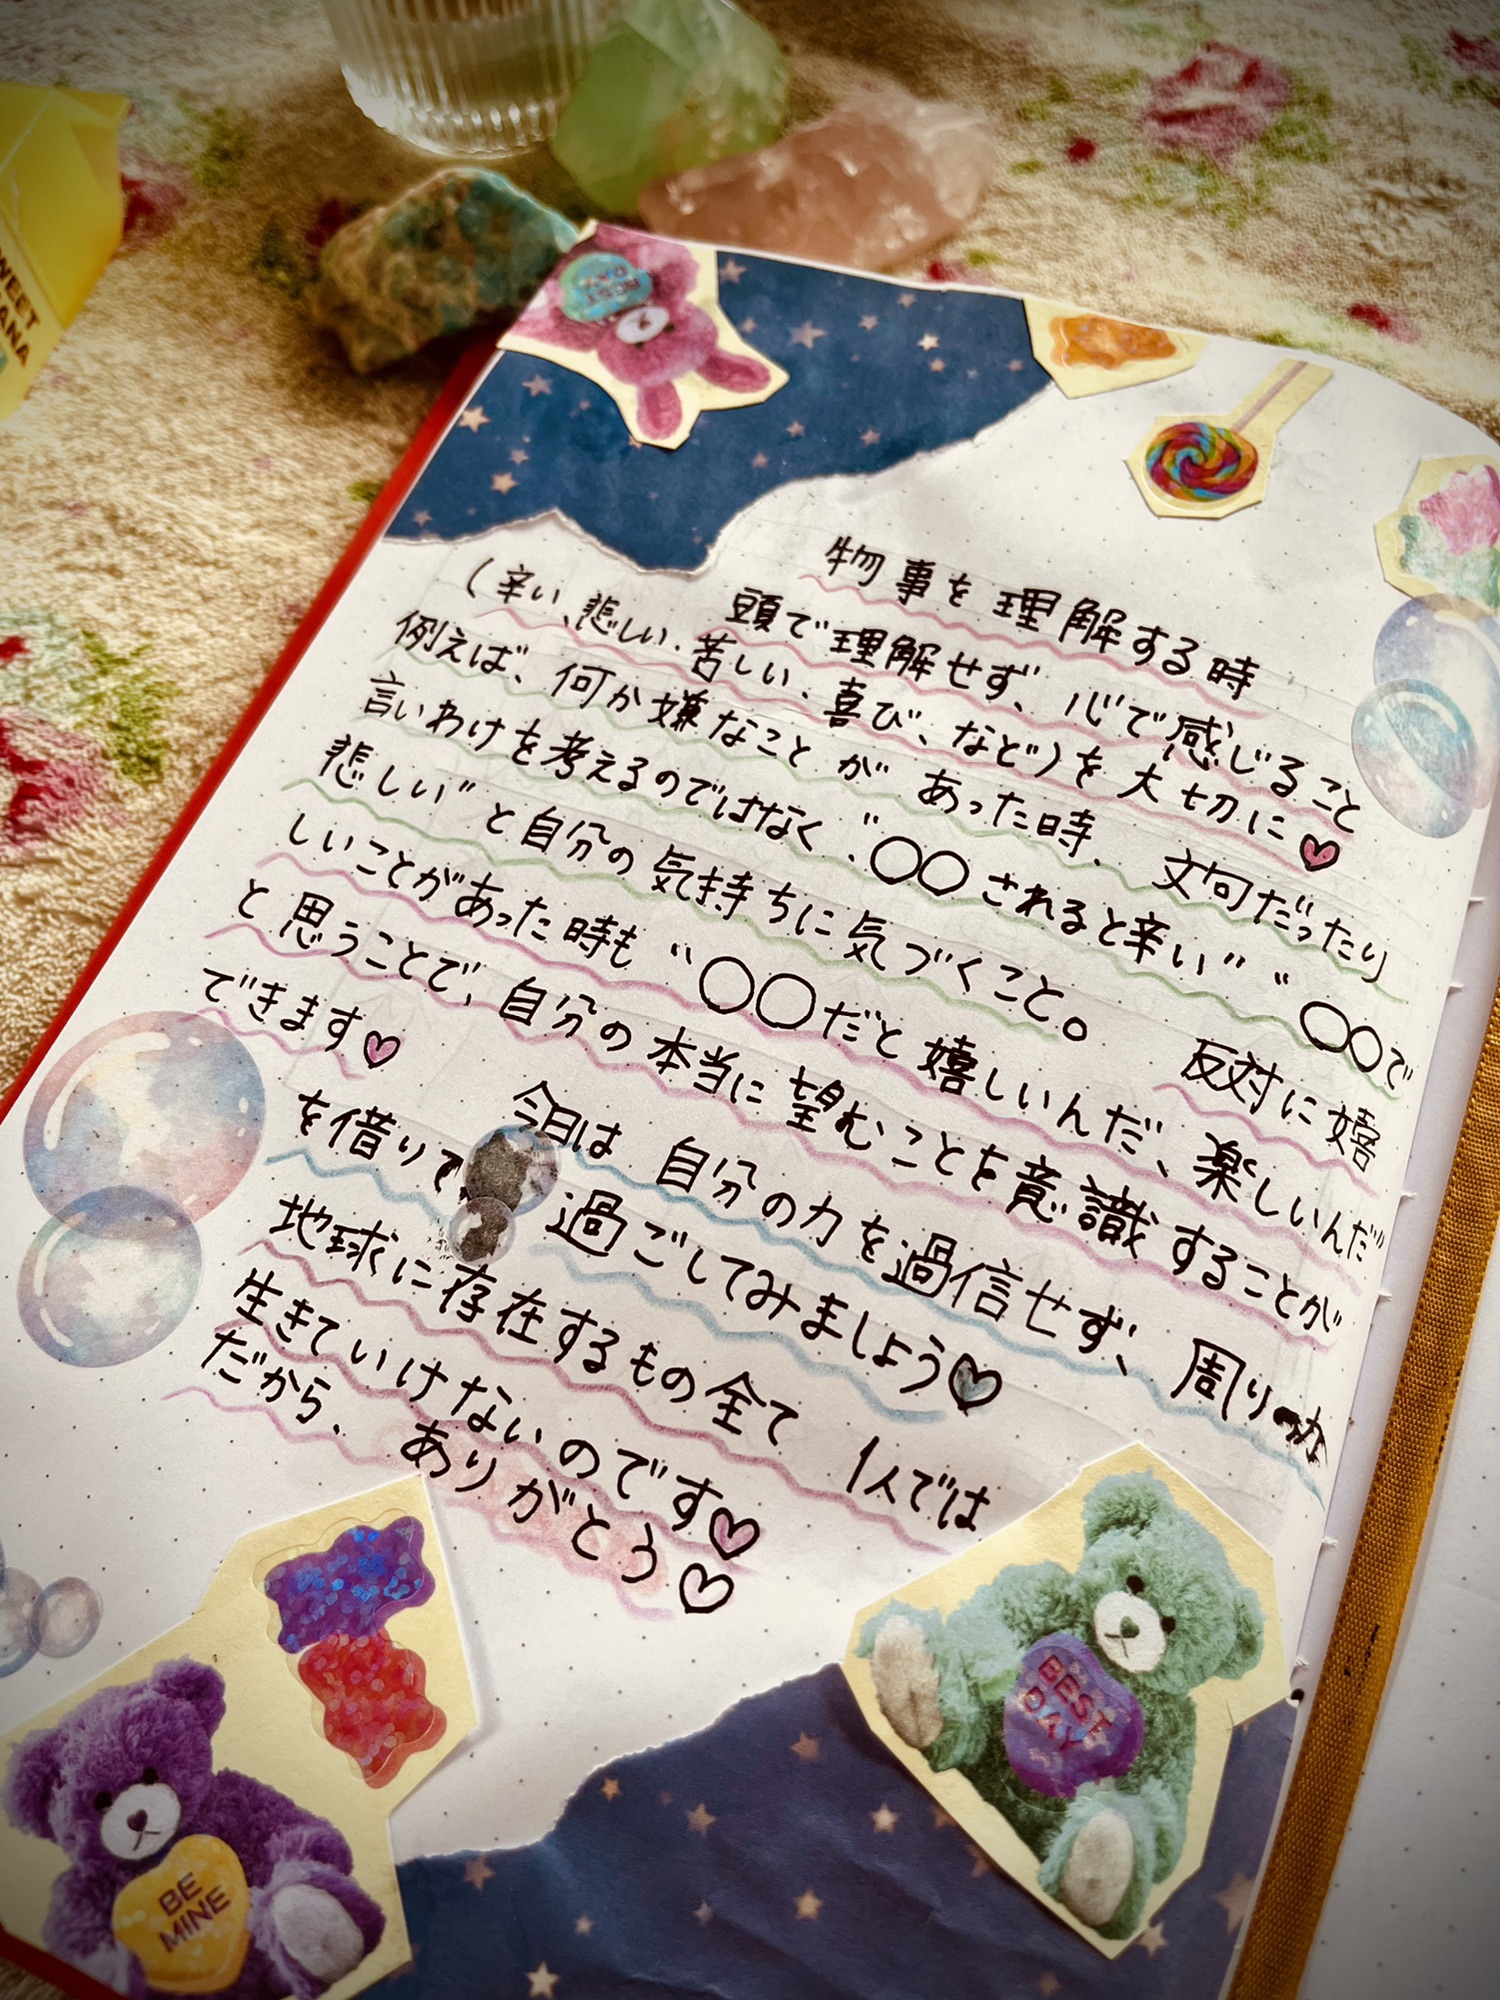 WEET
ANA
BEST
DAY
物事を理解する時
頭で理解せず、心で感じること
(辛い、悲しい、苦しい、喜び、など)を大切に♡
例えば、何か嫌なことがあった時、文句だったり
言いわけを考えるのではなく、"〇〇されると辛い" "〇〇で
悲しい"と自分の気持ちに気づくこと。反対に嬉
しいことがあった時も"〇〇だと嬉しいんだ、楽しいんだ
と思うことで、自分の本当に望むことを意識することが
できます♡
今日は自分の力を過信せず、周りの力
を借りて過ごしてみましょう♡
地球に存在するもの全て1人では
生きていけないのです♡
だから、ありがとう♡
BEST
DAY
BE
MINE